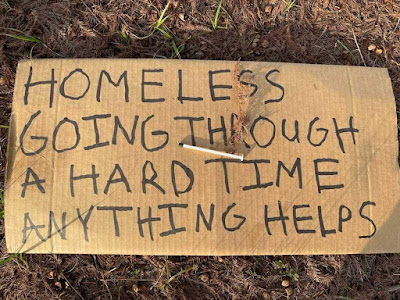 HOMELESS
GOING THROUGH
A HARD TIME
ANYTHING HELPS